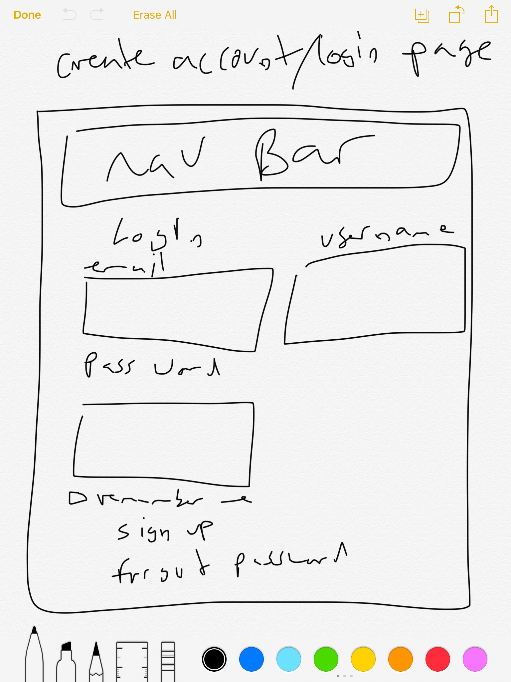 Done
Erase All
create account/login page
nav Bar
Login
username
email
Password
remember me
sign up
forgot password